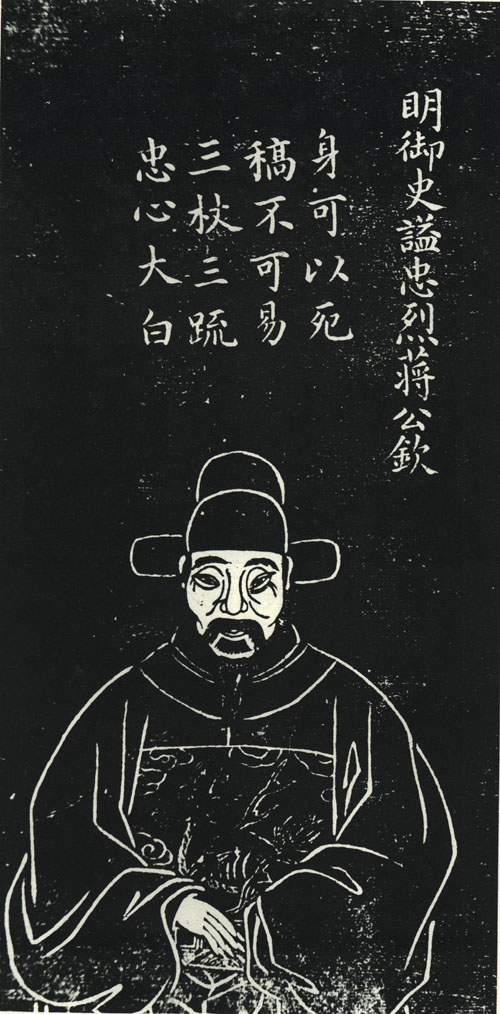 明御史謚忠烈蔣公欽
身可以死
稿不可易
三杖三䟽
忠心大白